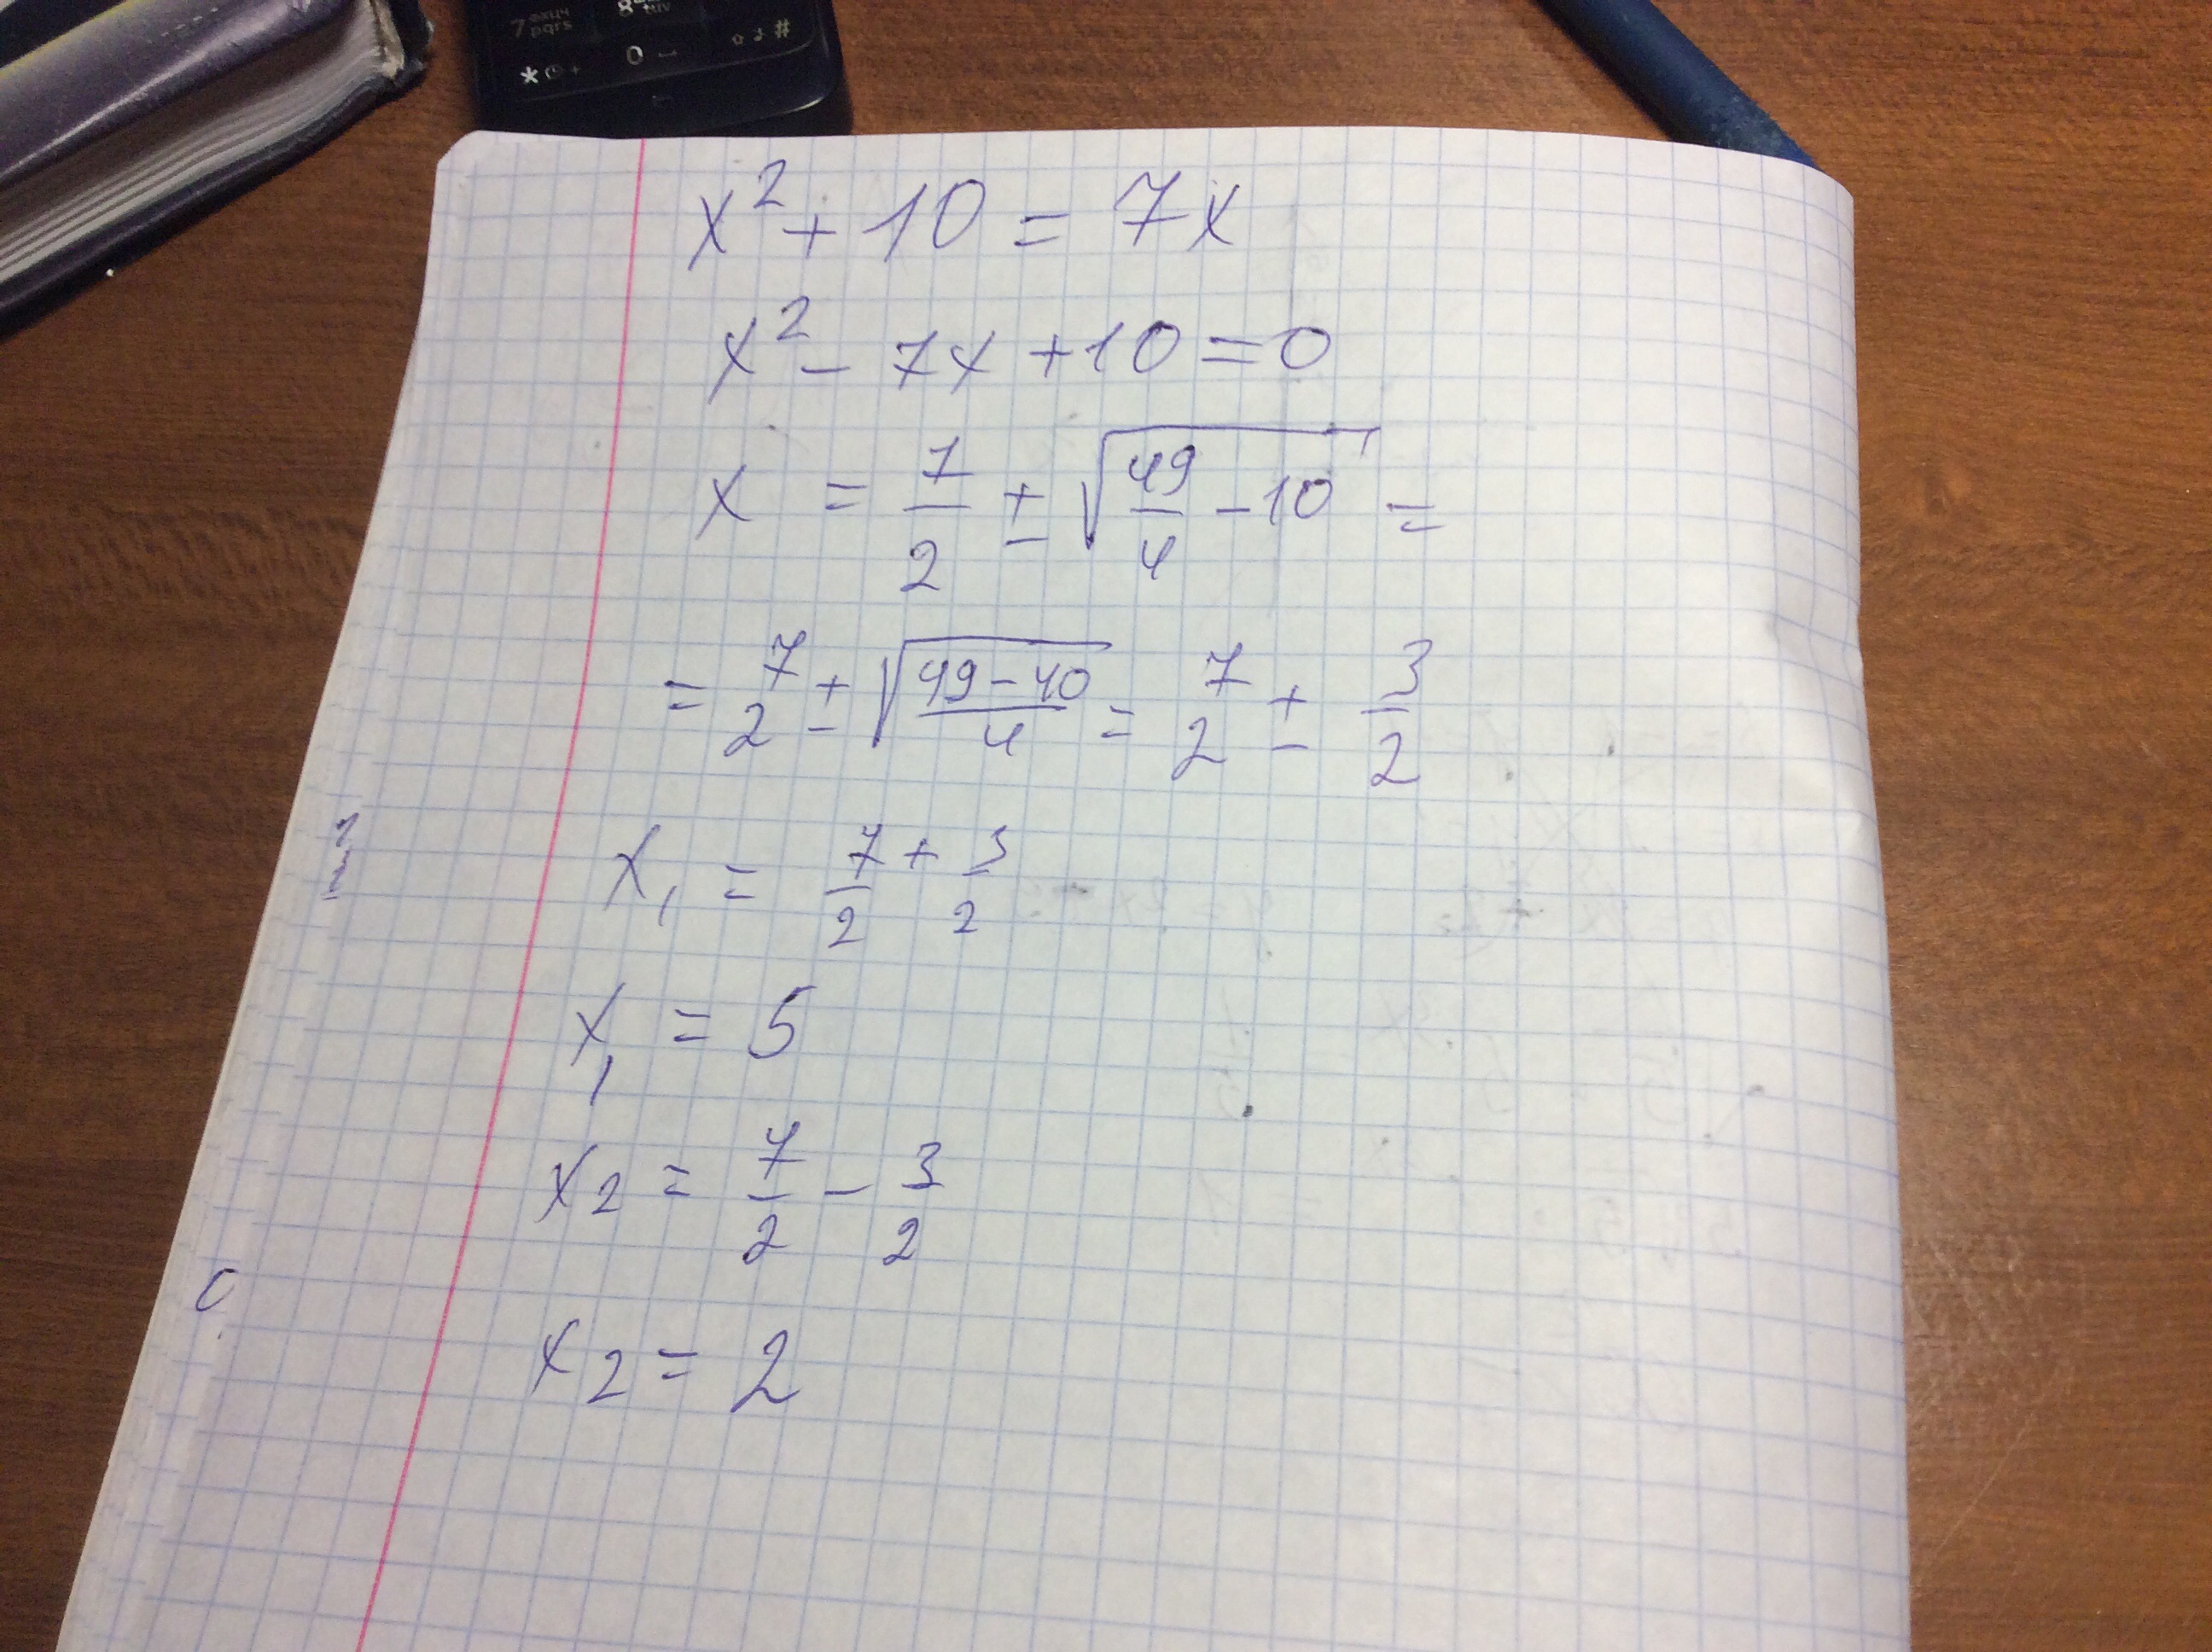 7 pqrs 8 tuv
* + 0 #
x² + 10 = 7x
x² - 7x + 10 = 0
x = 7/2 ± √(49/4 - 10) =
= 7/2 ± √((49 - 40)/4) = 7/2 ± 3/2
x₁ = 7/2 + 3/2
x₁ = 5
x₂ = 7/2 - 3/2
x₂ = 2